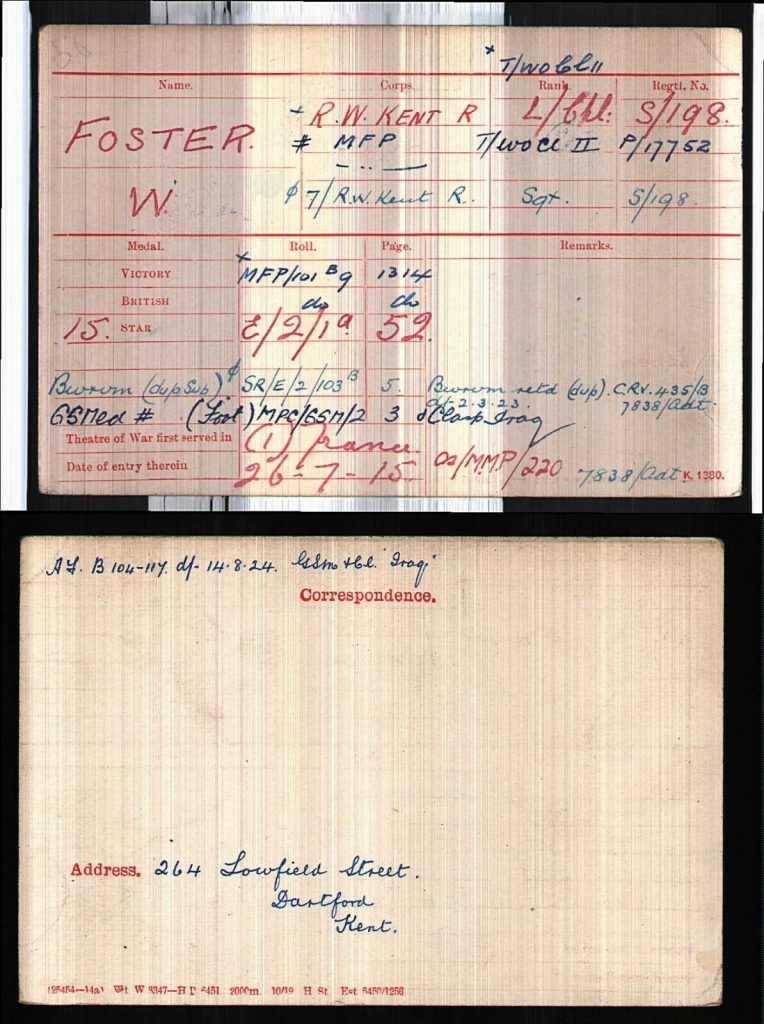 × T/WO Cl II
Name. Corps. Rank. Regtl. No.
FOSTER. × R.W. KENT R L/Cpl. S/198.
# MFP T/WO Cl II P/17752
W. φ 7/R.W. Kent R. Sgt. S/198.
Medal. Roll. Page. Remarks.
×
VICTORY MFP/101 B9 1314
BRITISH do do
15. STAR E/2/1a 52.
BWVM (dup Sub) φ SR/E/2/103B 5. BWVM retd (dup). C.R.V. 435/B
df- 2.3.23. 7838/Adt.
GSMed # (Foot) MPC/GSM/2 3 & Clasp Iraq
Theatre of War first served in (1) France
Date of entry therein 26-7-15. O2/MMP/220 7838/Adt K. 1380.
A.F. B 104-117. df- 14.8.24. GSM & Cl. "Iraq"
Correspondence.
Address. 264 Lowfield Street.
Dartford
Kent.
(25454—14a) Wt W 3347—H P 6451 2000m. 10/19 H St. Est 5450/1256